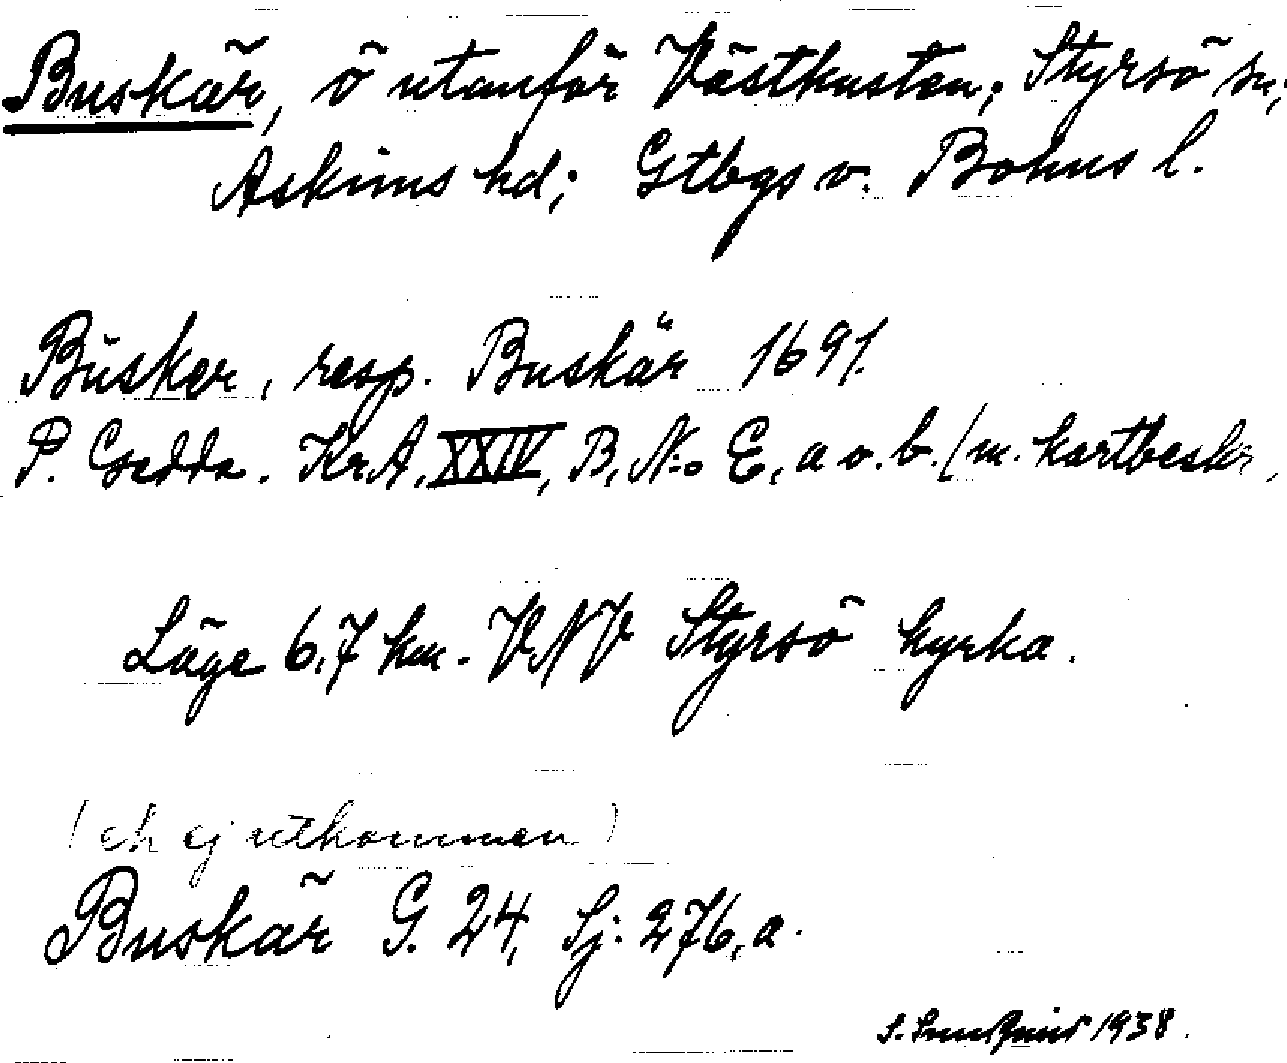 Buskär, ö utanför Västkusten; Styrsö sn;
Askims hd; Gtbgs o. Bohus l.
Busker, resp. Buskär 1691.
P. Gedda. Kr.A. XXIV, B, N:o E, a o. b. (m. kartbeskr,
Läge 6,7 km. VNV Styrsö kyrka.
(ek ej utkommen)
Buskär G. 24, Sj. 276, a.
1938.